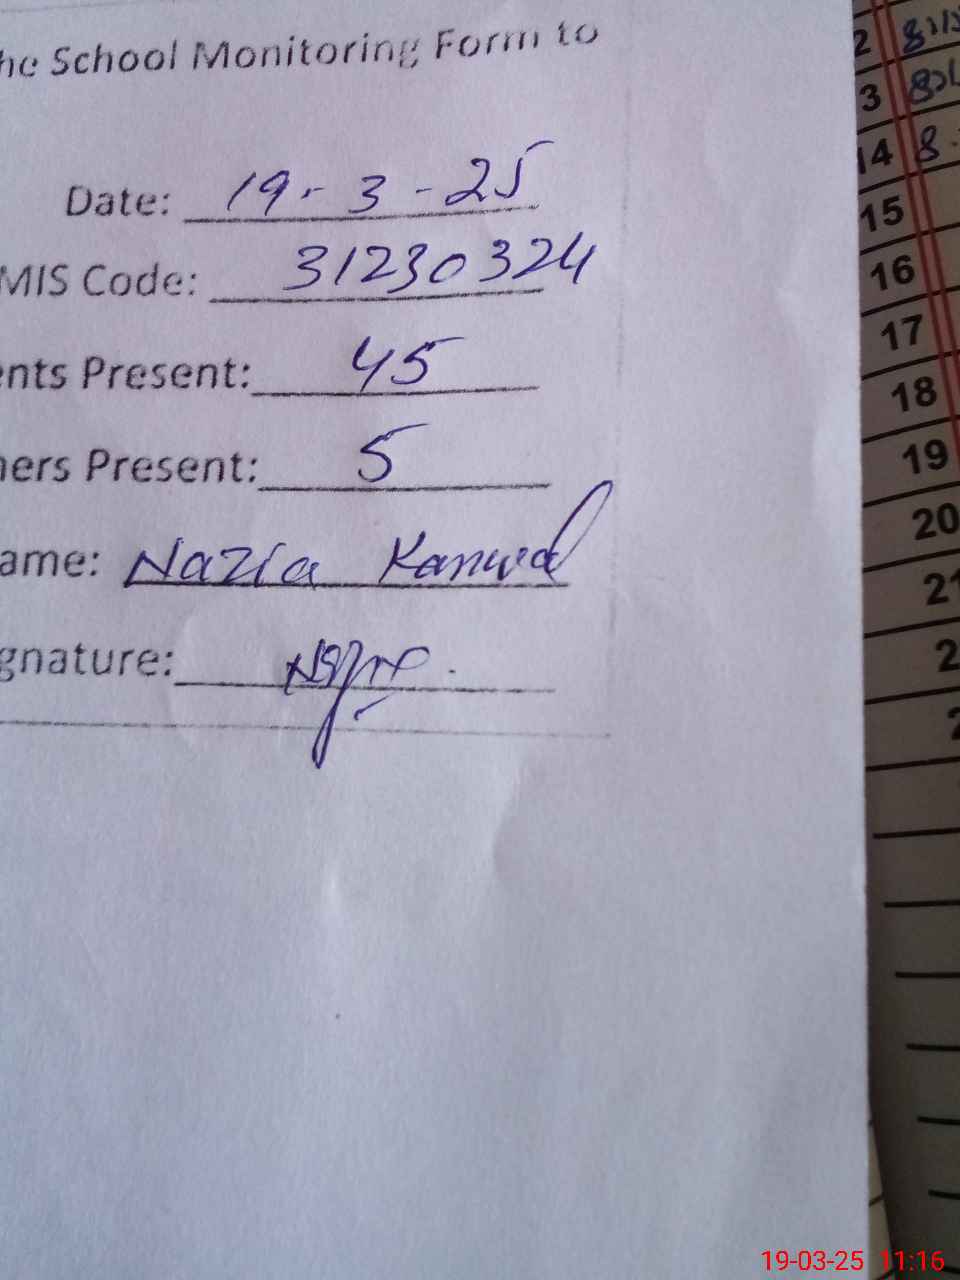 he School Monitoring Form to
Date: 19-3-25
MIS Code: 31230324
ents Present: 45
hers Present: 5
ame: Nazia Kanwal
gnature:
2
3
14 8
15
16
17
18
19
20
21
2
2
19-03-25 11:16